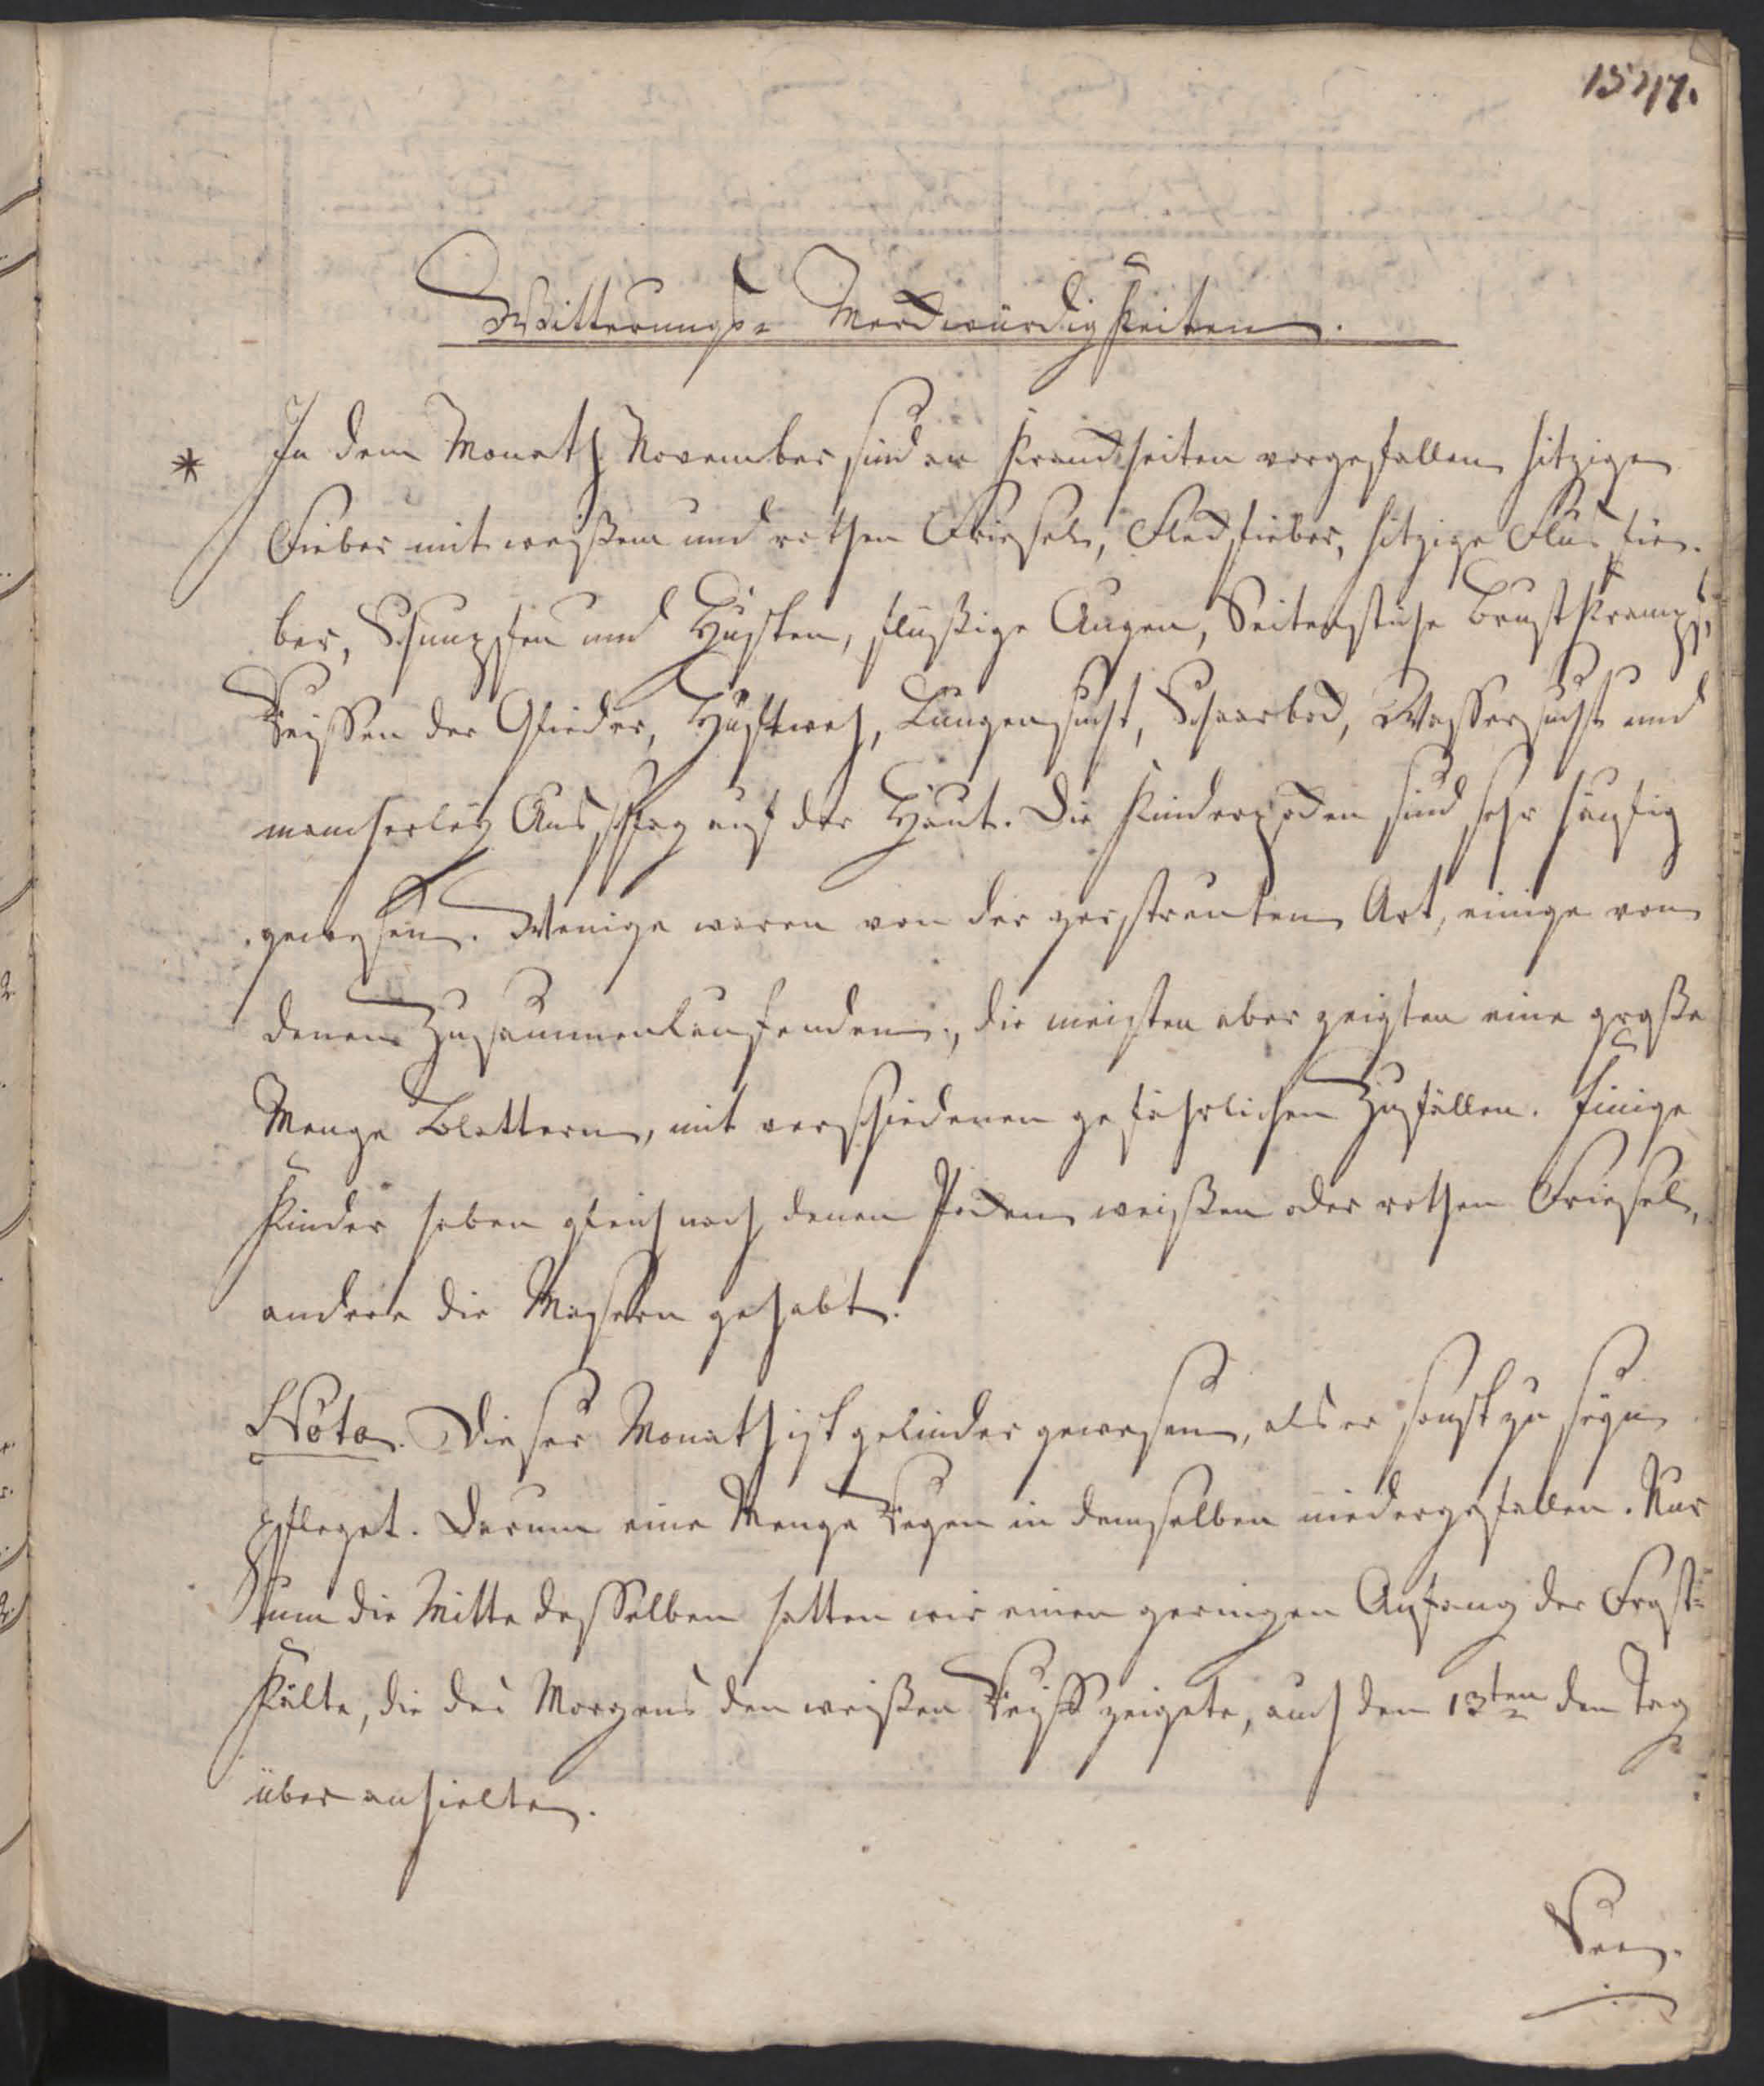 1547.
Witterungs- Merckwürdigkeiten.
* In dem Monath November sind an Kranckheiten vorgefallen hitzige
Fieber mit weißem und rothen Friesel, Fleckfieber, hitzige Flus fie-
ber, Schnupfen und Husten, flüßige Augen, Seitenstiche Brustkrampf,
Reissen der Glieder, Hüftweh, Lungensucht, Scharbock, Wassersucht und
mancherley Ausschlag auf der Haut. Die Kinderpocken sind sehr häufig
gewesen. Wenige waren von der zerstreuten Art, einige von
denen Zusammenlaufenden, die meisten aber zeigten eine große
Menge Blattern, mit verschiedenen gefährlichen Zufällen. Einige
Kinder haben gleich nach denen Pocken weißen oder rothen Friesel,
andere die Masern gehabt.
Nota. Dieser Monath ist gelinder gewesen, als er sonst zu seyn
pfleget. Darum eine Menge Regen in demselben niedergefallen. Nur
um die Mitte desselben hatten wir einen geringen Anfang der Frost-
Kälte, die des Morgens den weißen Reiff zeigete, auch den 13ten den Tag
über anhielte.